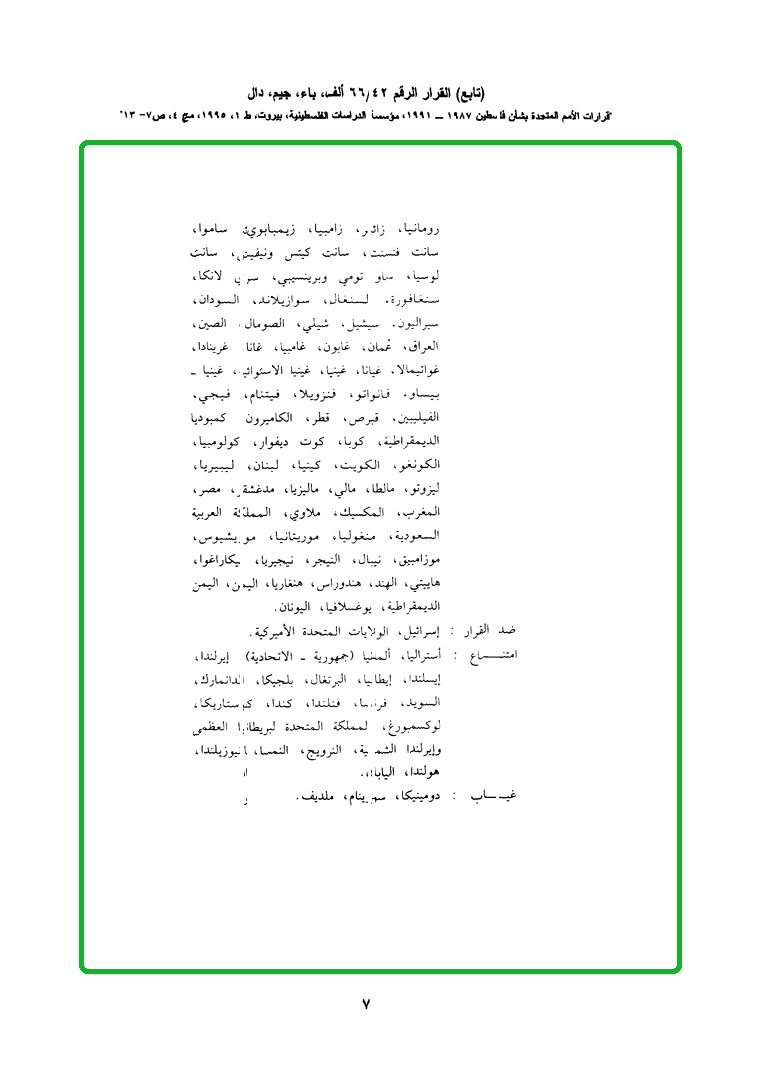 (تابع) القرار الرقم ٦٦/٤٢ ألف، باء، جيم، دال
"قرارات الأمم المتحدة بشأن فلسطين ١٩٨٧ ــ ١٩٩١، مؤسسة الدراسات الفلسطينية، بيروت، ط ١، ١٩٩٥، مج ٤، ص٧- ١٣"
رومانيا، زائير، زامبيا، زيمبابوي، ساموا،
سانت فنسنت، سانت كيتس ونيفيس، سانت
لوسيا، ساو تومي وبرينسيبي، سري لانكا،
سنغافورة، لسنغال، سوازيلاند، السودان،
سيراليون، سيشيل، شيلي، الصومال، الصين،
العراق، عُمان، غابون، غامبيا، غانا، غرينادا،
غواتيمالا، غيانا، غينيا، غينيا الاستوائية، غينيا ـ
بيساو، فانواتو، فنزويلا، فيتنام، فيجي،
الفيليبين، قبرص، قطر، الكاميرون، كمبوديا
الديمقراطية، كوبا، كوت ديفوار، كولومبيا،
الكونغو، الكويت، كينيا، لبنان، ليبيريا،
ليزوتو، مالطا، مالي، ماليزيا، مدغشقر، مصر،
المغرب، المكسيك، ملاوي، المملكة العربية
السعودية، منغوليا، موريتانيا، موريشيوس،
موزامبيق، نيبال، النيجر، نيجيريا، نيكاراغوا،
هاييتي، الهند، هندوراس، هنغاريا، اليمن، اليمن
الديمقراطية، يوغسلافيا، اليونان.
ضد القرار : إسرائيل، الولايات المتحدة الأميركية.
امتنـــــاع : أستراليا، ألمانيا (جمهورية ـ الاتحادية) إيرلندا،
إيسلندا، إيطاليا، البرتغال، بلجيكا، الدانمارك،
السويد، فرنسا، فنلندا، كندا، كوستاريكا،
لوكسمبورغ، لمملكة المتحدة لبريطانيا العظمى
وإيرلندا الشمالية، النرويج، النمسا، نيوزيلندا،
هولندا، اليابان.
غيــــاب : دومينيكا، سورينام، ملديف.
٧